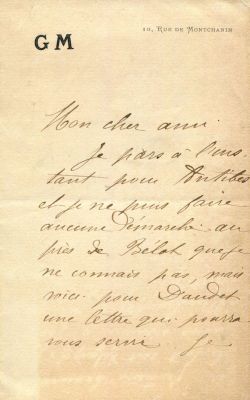 GM
10, Rue de Montchanin
Mon cher ami
Je pars à l'ins
tant pour Antibes
et je ne puis faire
aucune démarche au
près de Bélot que je
ne connais pas, mais
voici pour Daudet
une lettre qui pourra
vous servir. Je